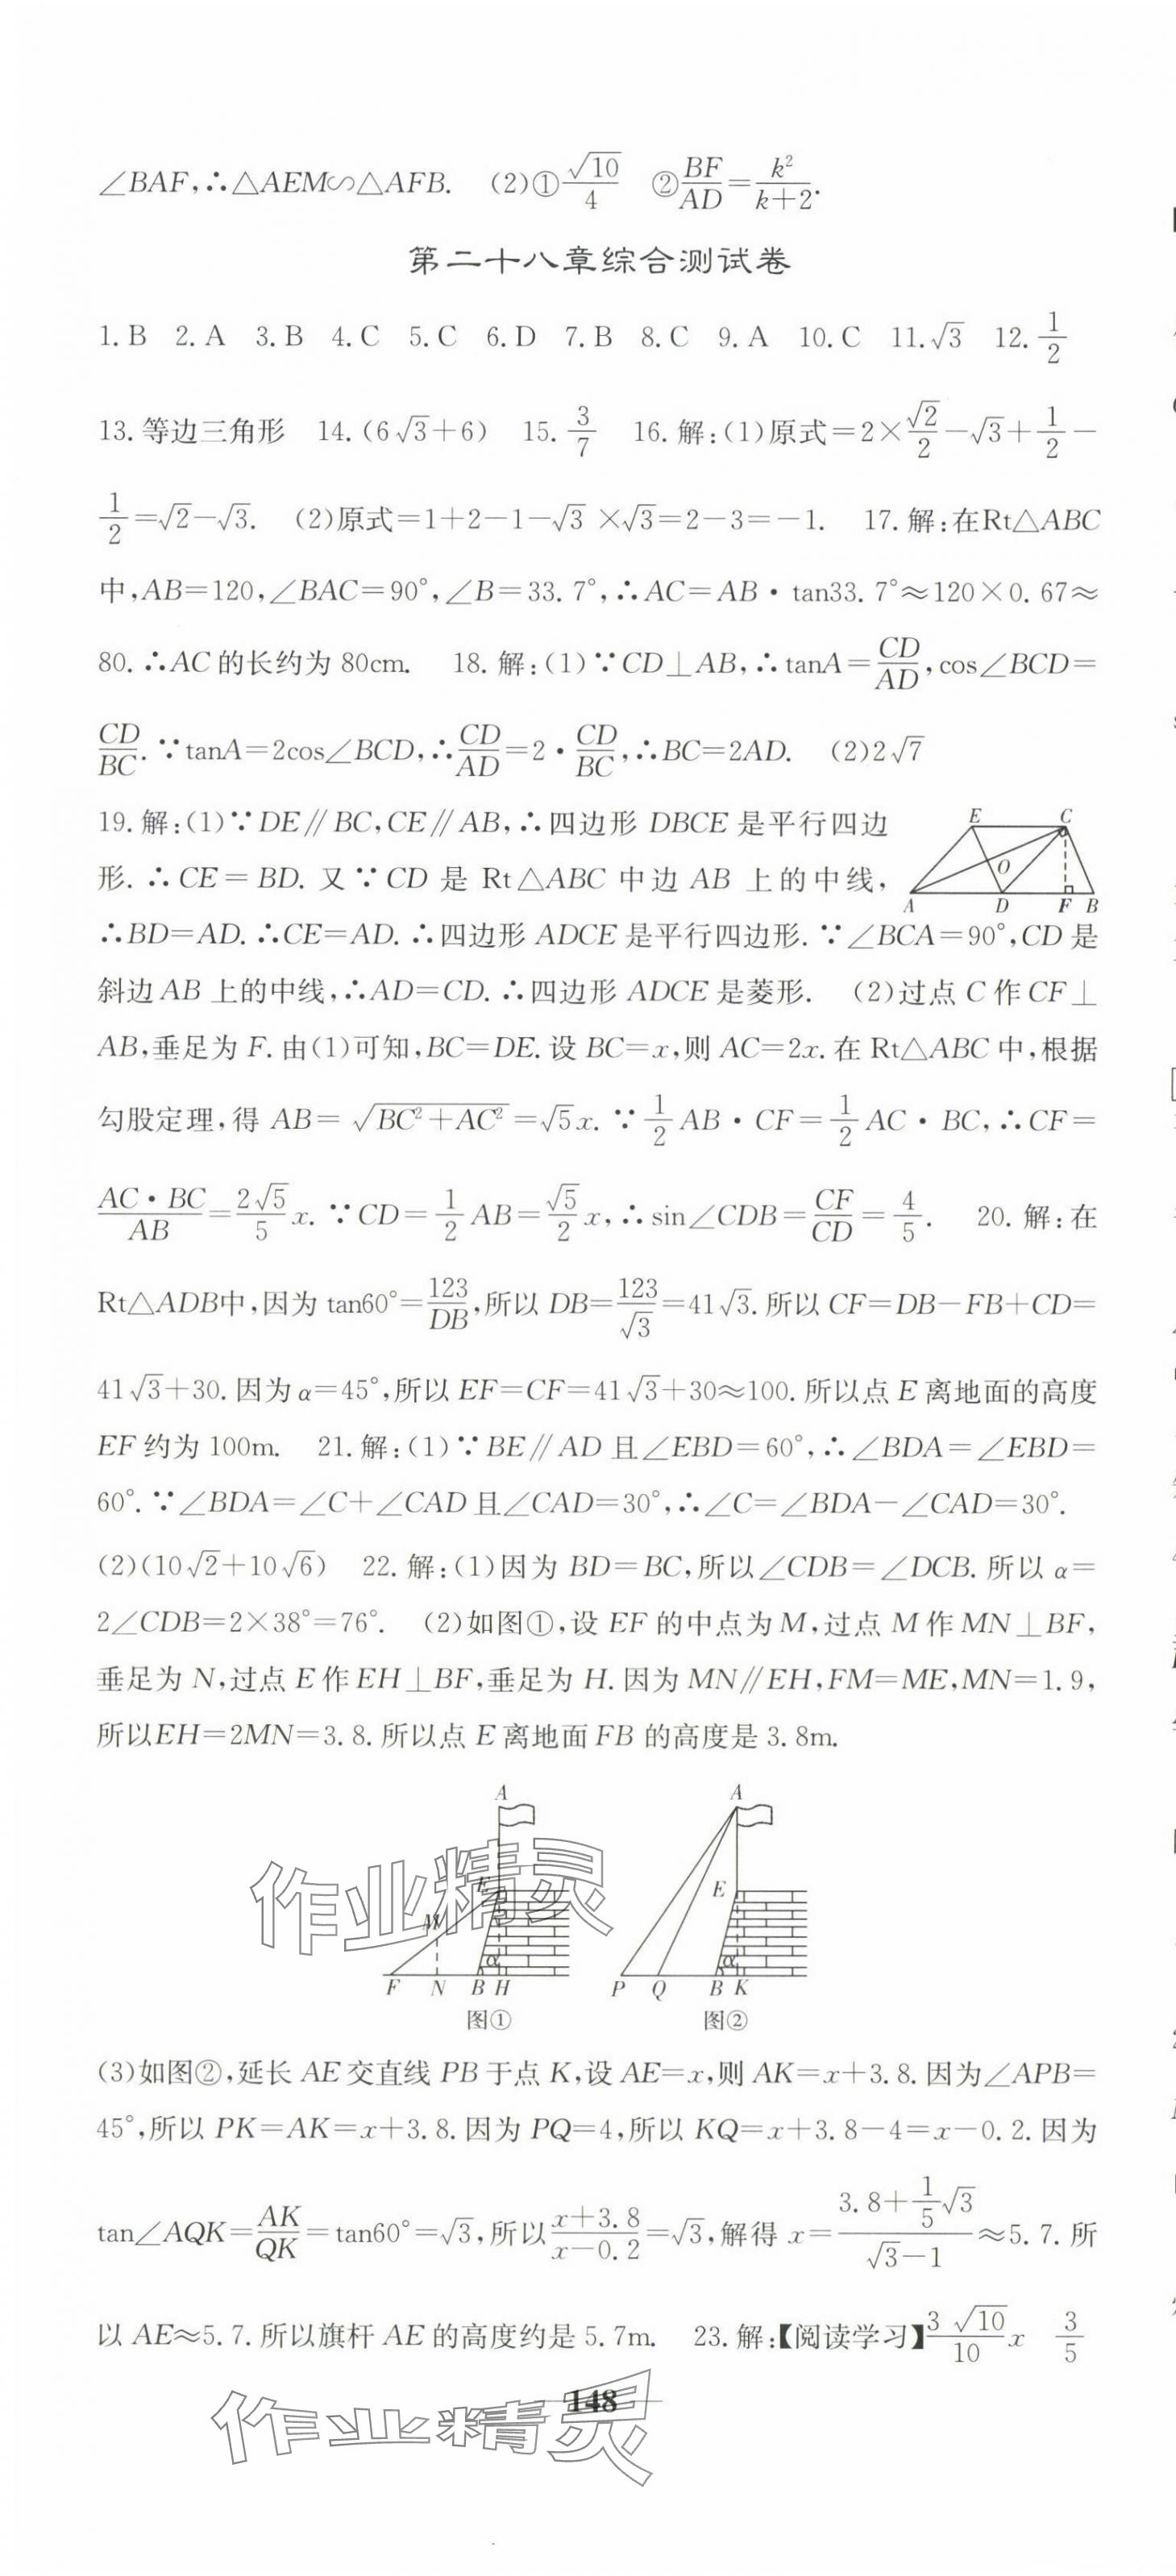 ∠BAF,∴△AEM∽△AFB. (2)①√10/4 ②BF/AD=k²/(k+2).
第二十八章综合测试卷
1.B 2.A 3.B 4.C 5.C 6.D 7.B 8.C 9.A 10.C 11.√3 12.1/2
13.等边三角形 14.(6√3+6) 15.3/7 16.解:(1)原式=2×√2/2-√3+1/2-
1/2=√2-√3. (2)原式=1+2-1-√3×√3=2-3=-1. 17.解:在Rt△ABC
中,AB=120,∠BAC=90°,∠B=33.7°,∴AC=AB·tan33.7°≈120×0.67≈
80.∴AC的长约为80cm. 18.解:(1)∵CD⊥AB,∴tanA=CD/AD,cos∠BCD=
CD/BC.∵tanA=2cos∠BCD,∴CD/AD=2·CD/BC,∴BC=2AD. (2)2√7
19.解:(1)∵DE∥BC,CE∥AB,∴四边形DBCE是平行四边
形.∴CE=BD.又∵CD是Rt△ABC中边AB上的中线,
E C
O
A D F B
∴BD=AD.∴CE=AD.∴四边形ADCE是平行四边形.∵∠BCA=90°,CD是
斜边AB上的中线,∴AD=CD.∴四边形ADCE是菱形. (2)过点C作CF⊥
AB,垂足为F.由(1)可知,BC=DE.设BC=x,则AC=2x.在Rt△ABC中,根据
勾股定理,得AB=√(BC²+AC²)=√5x.∵1/2AB·CF=1/2AC·BC,∴CF=
AC·BC/AB=2√5/5x.∵CD=1/2AB=√5/2x,∴sin∠CDB=CF/CD=4/5. 20.解:在
Rt△ADB中,因为tan60°=123/DB,所以DB=123/√3=41√3.所以CF=DB-FB+CD=
41√3+30.因为α=45°,所以EF=CF=41√3+30≈100.所以点E离地面的高度
EF约为100m. 21.解:(1)∵BE∥AD且∠EBD=60°,∴∠BDA=∠EBD=
60°.∵∠BDA=∠C+∠CAD且∠CAD=30°,∴∠C=∠BDA-∠CAD=30°.
(2)(10√2+10√6) 22.解:(1)因为BD=BC,所以∠CDB=∠DCB.所以α=
2∠CDB=2×38°=76°. (2)如图①,设EF的中点为M,过点M作MN⊥BF,
垂足为N,过点E作EH⊥BF,垂足为H.因为MN∥EH,FM=ME,MN=1.9,
所以EH=2MN=3.8.所以点E离地面FB的高度是3.8m.
A A
E E
M
α α
F N B H P Q B K
图① 图②
作业精灵
(3)如图②,延长AE交直线PB于点K,设AE=x,则AK=x+3.8.因为∠APB=
45°,所以PK=AK=x+3.8.因为PQ=4,所以KQ=x+3.8-4=x-0.2.因为
tan∠AQK=AK/QK=tan60°=√3,所以(x+3.8)/(x-0.2)=√3,解得x=(3.8+1/5√3)/(√3-1)≈5.7.所
以AE≈5.7.所以旗杆AE的高度约是5.7m. 23.解:【阅读学习】3√10/10x 3/5
148
作业精灵